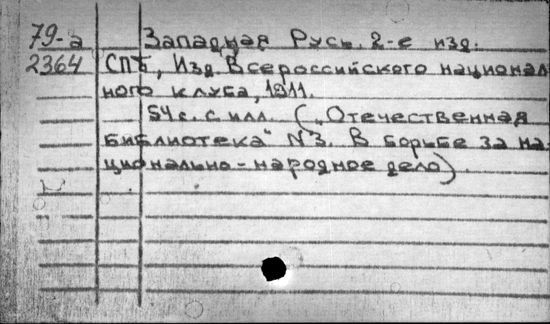 79-а Западная Русь. 2-е изд.
2364 СПб, Изд Всероссийского национал
ного клуба, 1911.
54 с. с илл. („Отечественная
библиотека" №3. В борьбе за на-
ционально-народное дело).